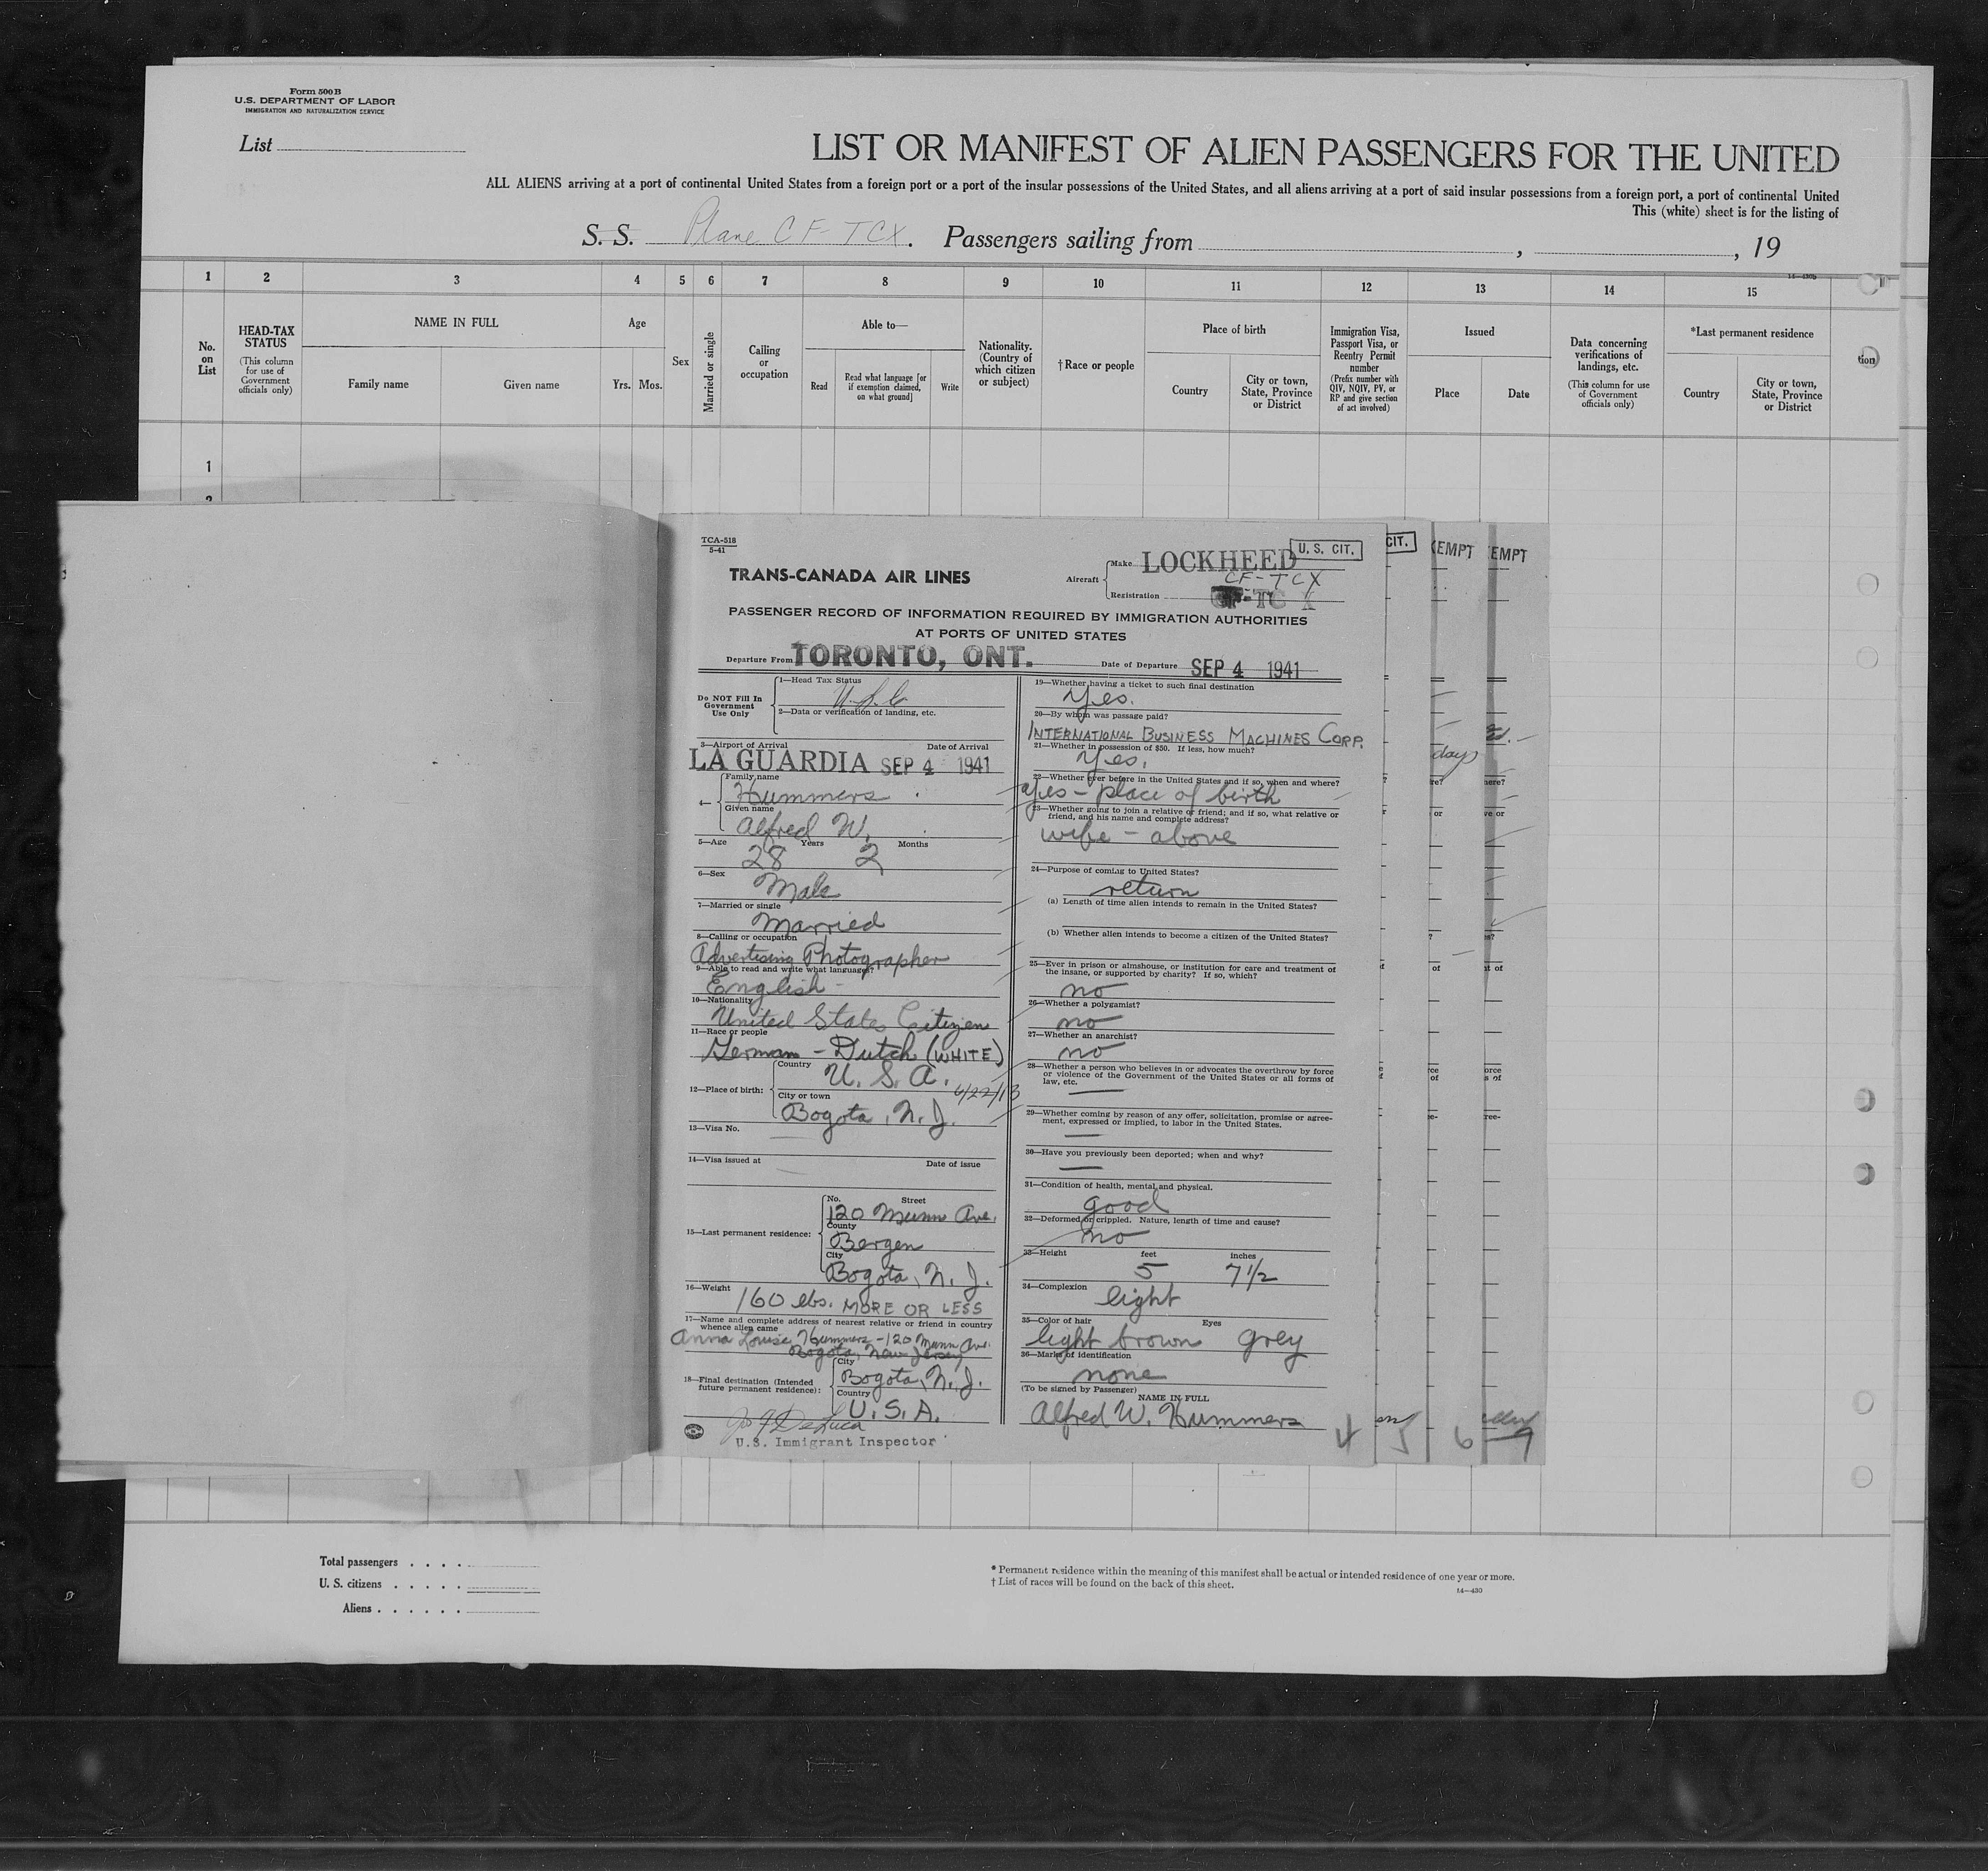 Form 500 B
U.S. DEPARTMENT OF LABOR
IMMIGRATION AND NATURALIZATION SERVICE
List
LIST OR MANIFEST OF ALIEN PASSENGERS FOR THE UNITED
ALL ALIENS arriving at a port of continental United States from a foreign port or a port of the insular possessions of the United States, and all aliens arriving at a port of said insular possessions from a foreign port, a port of continental United
This (white) sheet is for the listing of
S. S. Plane CF-TCX. Passengers sailing from , , 19
14—430b
1 2 3 4 5 6 7 8 9 10 11 12 13 14 15
No. on List
HEAD-TAX STATUS
(This column for use of Government officials only)
NAME IN FULL
Family name Given name
Age
Yrs. Mos.
Sex
Married or single
Calling or occupation
Able to—
Read
Read what language [or if exemption claimed, on what ground]
Write
Nationality. (Country of which citizen or subject)
†Race or people
Place of birth
Country
City or town, State, Province or District
Immigration Visa, Passport Visa, or Reentry Permit number
(Prefix number with QIV, NQIV, PV, or RP and give section of act involved)
Issued
Place Date
Data concerning verifications of landings, etc.
(This column for use of Government officials only)
*Last permanent residence
Country
City or town, State, Province or District
tion
1
2
TCA-518
5-41
TRANS-CANADA AIR LINES
Aircraft
Make LOCKHEED
U. S. CIT.
CF-TCX
Registration CF-TC X
PASSENGER RECORD OF INFORMATION REQUIRED BY IMMIGRATION AUTHORITIES
AT PORTS OF UNITED STATES
Departure From TORONTO, ONT. Date of Departure SEP 4 1941
Do NOT Fill In Government Use Only
1—Head Tax Status
U.S.C
2—Data or verification of landing, etc.
3—Airport of Arrival Date of Arrival
LA GUARDIA SEP 4 1941
4—
Family name
Hummers
Given name
Alfred W.
5—Age Years Months
28 2
6—Sex
Male
7—Married or single
Married
8—Calling or occupation
Advertising Photographer
9—Able to read and write what languages?
English -
10—Nationality
United States Citizen
11—Race or people
German - Dutch (WHITE)
12—Place of birth:
Country
U. S. A.
6/22/13
City or town
Bogota, N. J.
13—Visa No.
14—Visa issued at Date of issue
15—Last permanent residence:
No. Street
120 Munn Ave.
County
Bergen
City
Bogota, N. J.
16—Weight
160 lbs. MORE OR LESS
17—Name and complete address of nearest relative or friend in country
whence alien came
Anna Louise Hummers - 120 Munn Ave.
Bogota, New Jersey
18—Final destination (Intended future permanent residence):
City
Bogota, N. J.
Country
U. S. A.
U.S. Immigrant Inspector
19—Whether having a ticket to such final destination
Yes.
20—By whom was passage paid?
INTERNATIONAL BUSINESS MACHINES CORP.
21—Whether in possession of $50. If less, how much?
Yes.
22—Whether ever before in the United States and if so, when and where?
Yes - place of birth
23—Whether going to join a relative or friend; and if so, what relative or
friend, and his name and complete address?
wife - above
24—Purpose of coming to United States?
return
(a) Length of time alien intends to remain in the United States?
(b) Whether alien intends to become a citizen of the United States?
25—Ever in prison or almshouse, or institution for care and treatment of
the insane, or supported by charity? If so, which?
no
26—Whether a polygamist?
no
27—Whether an anarchist?
no
28—Whether a person who believes in or advocates the overthrow by force
or violence of the Government of the United States or all forms of
law, etc.
29—Whether coming by reason of any offer, solicitation, promise or agree-
ment, expressed or implied, to labor in the United States.
30—Have you previously been deported; when and why?
31—Condition of health, mental and physical.
good
32—Deformed or crippled. Nature, length of time and cause?
no
33—Height feet inches
5 7 1/2
34—Complexion
light
35—Color of hair Eyes
light brown grey
36—Marks of identification
none
(To be signed by Passenger)
NAME IN FULL
Alfred W. Hummers
4 5 6 7
CIT.
EMPT
EMPT
days
Total passengers . . . .
U. S. citizens . . . . .
Aliens . . . . . .
* Permanent residence within the meaning of this manifest shall be actual or intended residence of one year or more.
† List of races will be found on the back of this sheet.
14—430